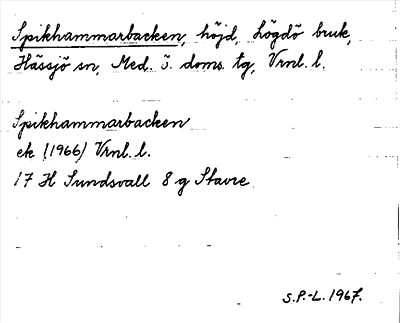 Spikhammarbacken, höjd, Lögdö bruk,
Hässjö sn, Med. ö. doms. tg, Vrnl. l.
Spikhammarbacken
ek (1966) Vrnl. l.
17 H Sundsvall 8 g Stavre
S.P.-L. 1967.